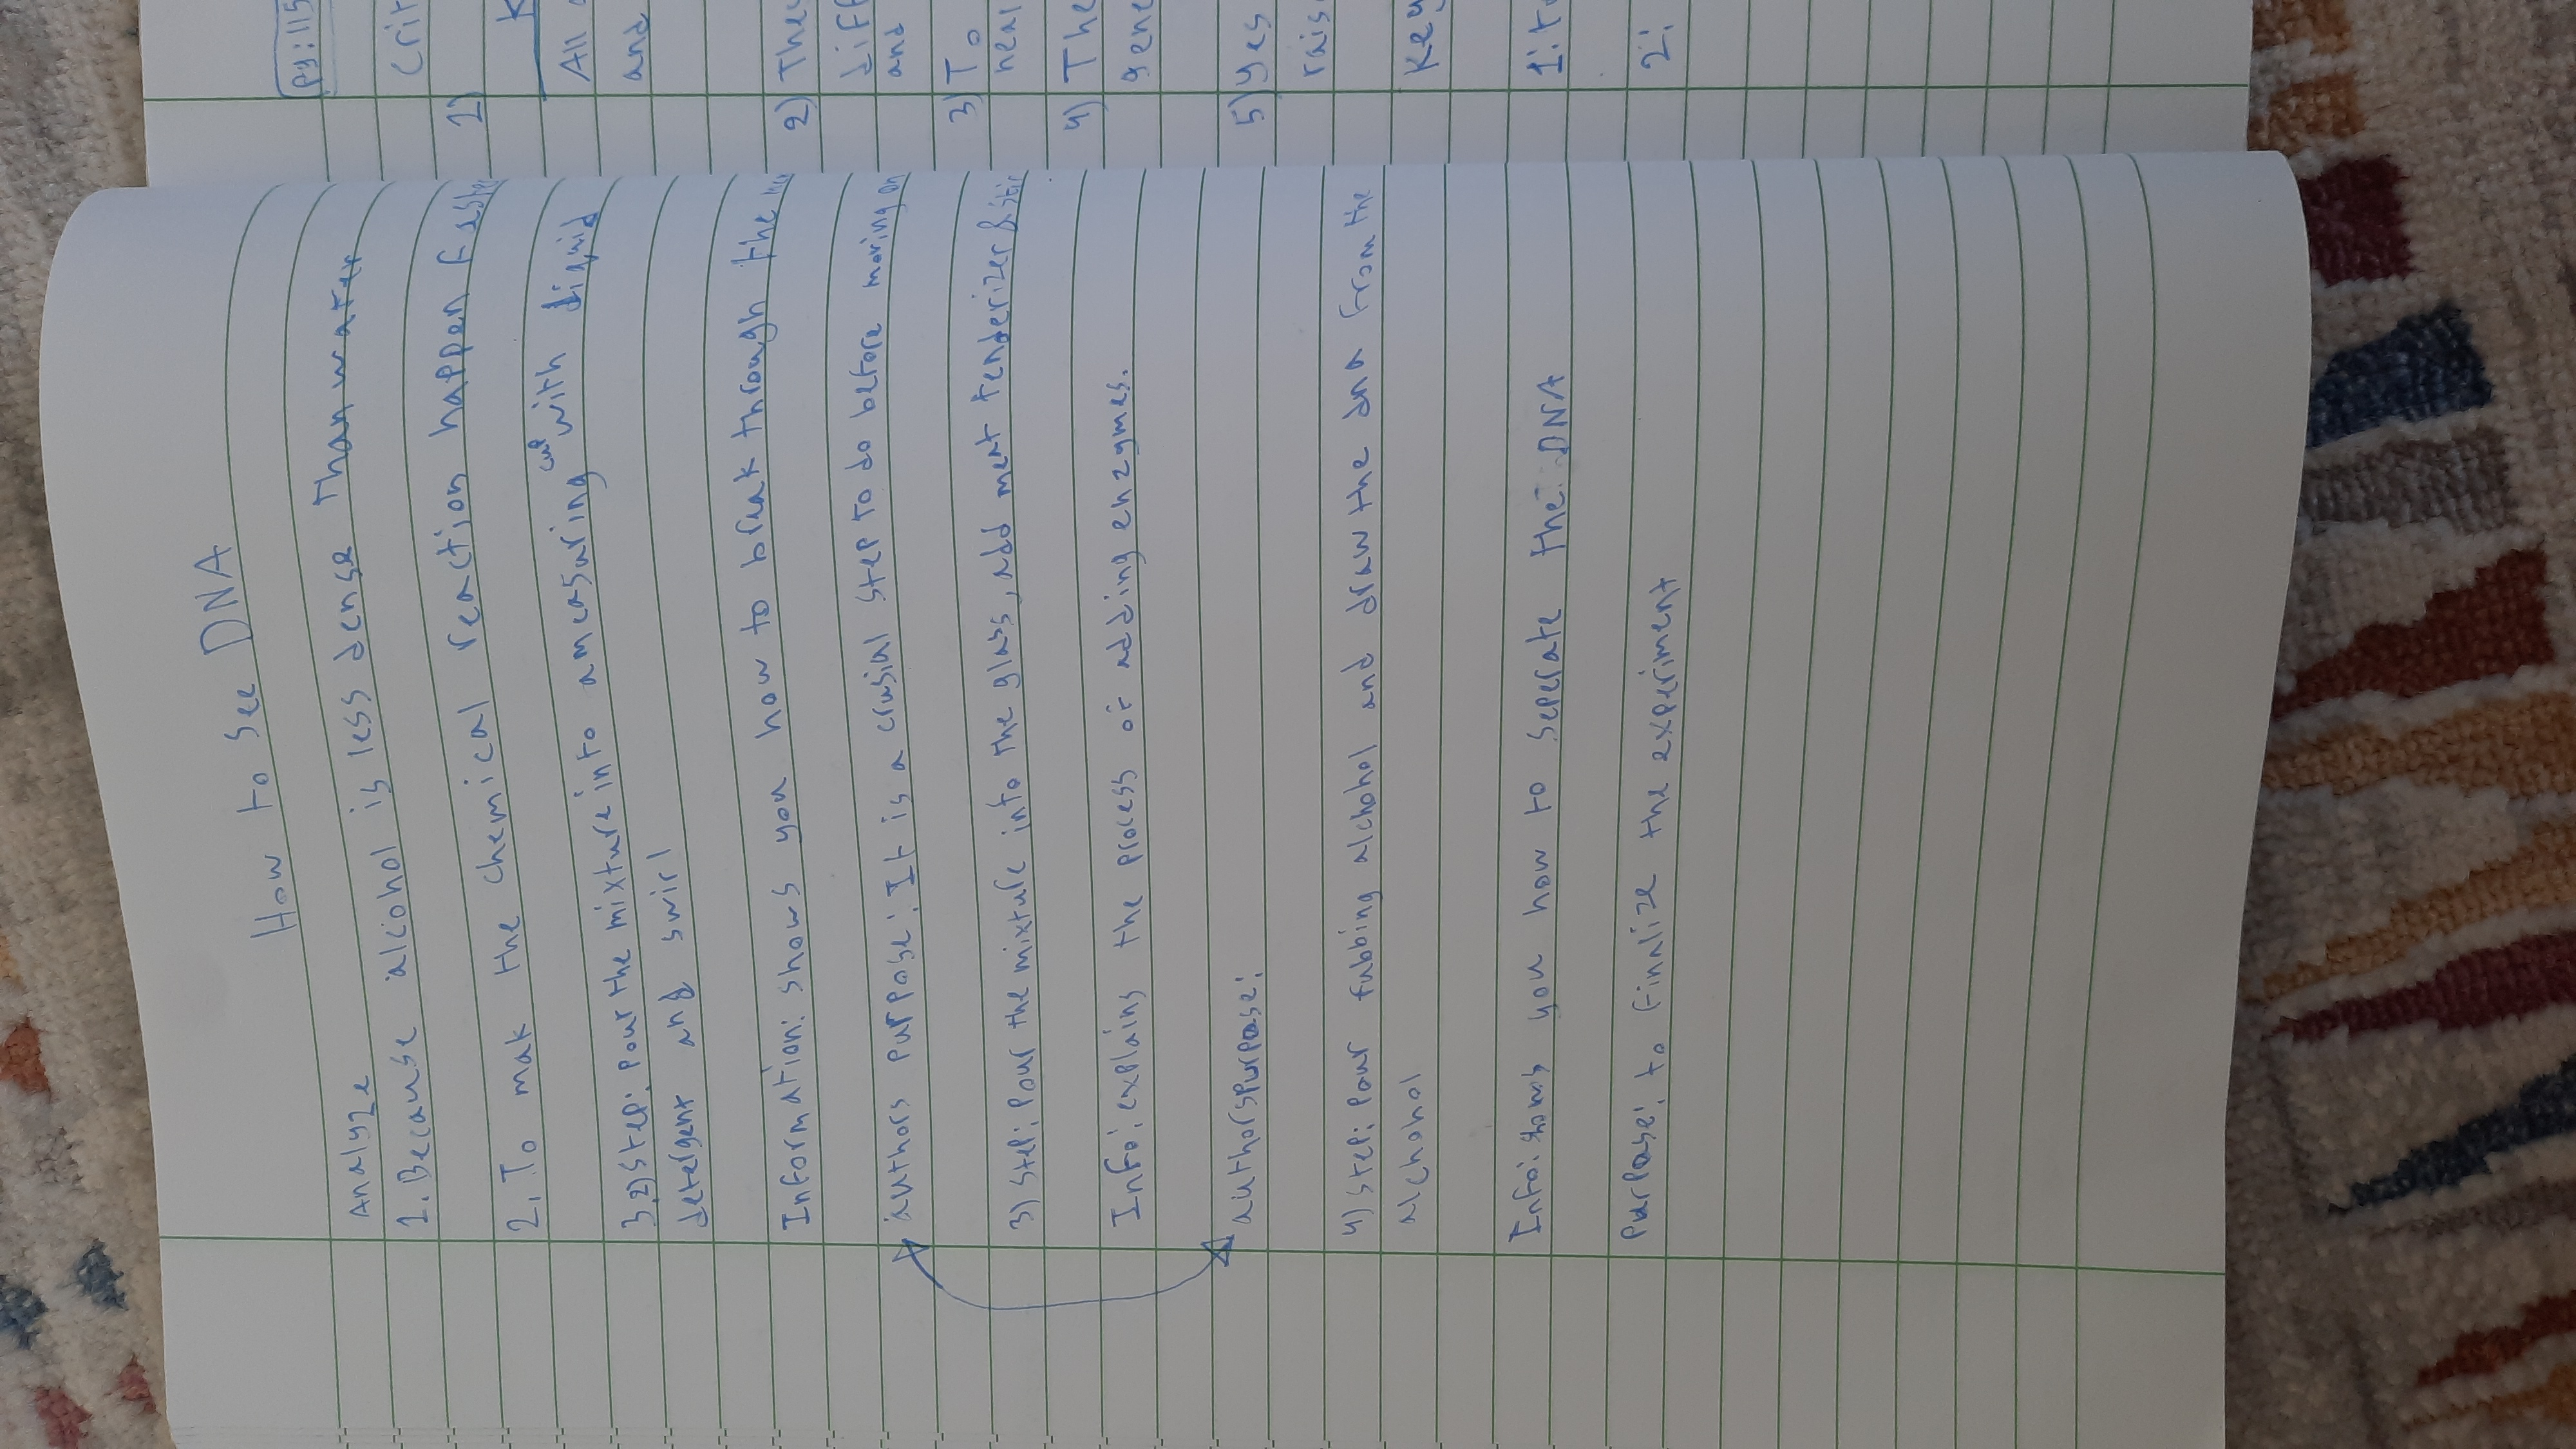 How to See DNA
Analyze
1. Because alcohol is less dense than water
2. To mak the chemical reaction happen faster
3.2) Step: Pour the mixture into a measuring cup with liquid
detergent and swirl
Information: shows you how to break through the
authors purpose: It is a crusial step to do before moving on
3) Step: Pour the mixture into the glass, add meat tenderizer & stir
Info: explains the process of adding enzymes.
authors Purpose:
4) Step: Pour rubbing alchohol and draw the dna from the
alchohol
Info: shows you how to seperate the DNA
Purpose: to finalize the experiment
pg: 115
Crit
1)
K
All
and
2) The
diff
and
3) To
near
4) The
gene
5) Yes
rais
Key
1: t
2: